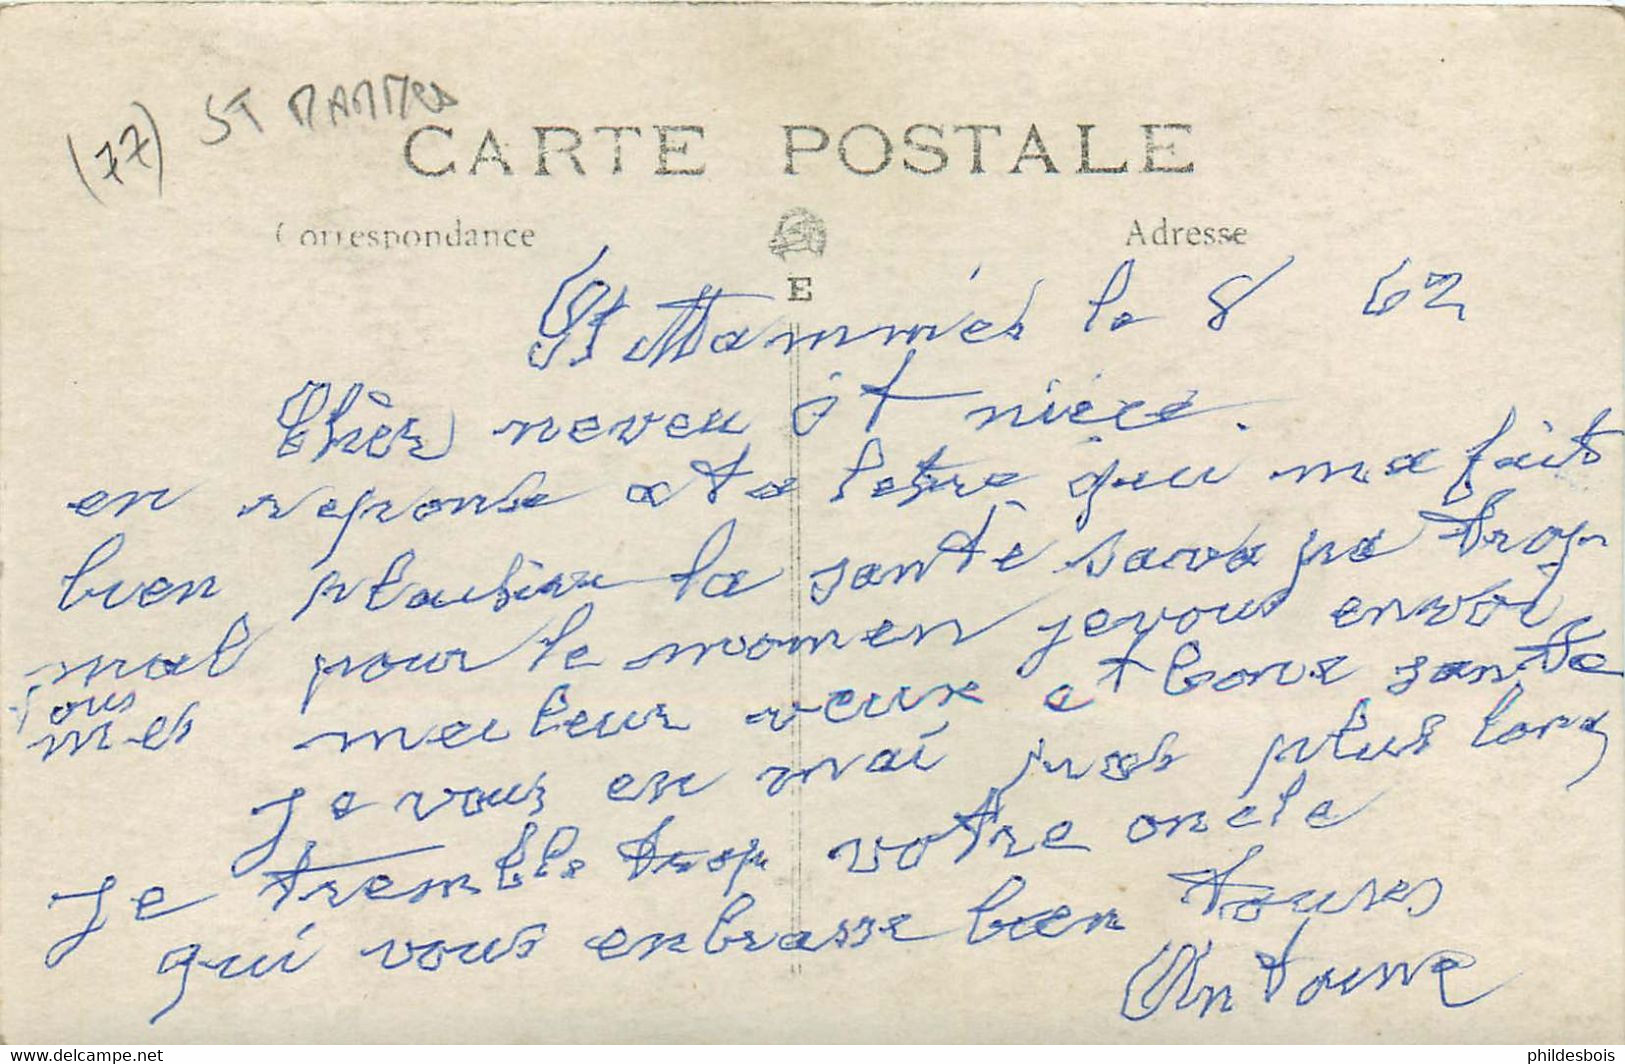 (77) ST MAMMES
CARTE POSTALE
Correspondance
Adresse
E
St Mammés le 8 62
Chèr neveu et niéce.
en reponse a ta lettre qui ma fait
bien plaisire la santé sava pa trop
mal pour le momen je vous envoi
tous
mes meileur veux et bone sante
je vous en mai pas plus long
Je tremble trop votre oncle
qui vous enbrasse bien tous
Antoine
www.delcampe.net
phildesbois